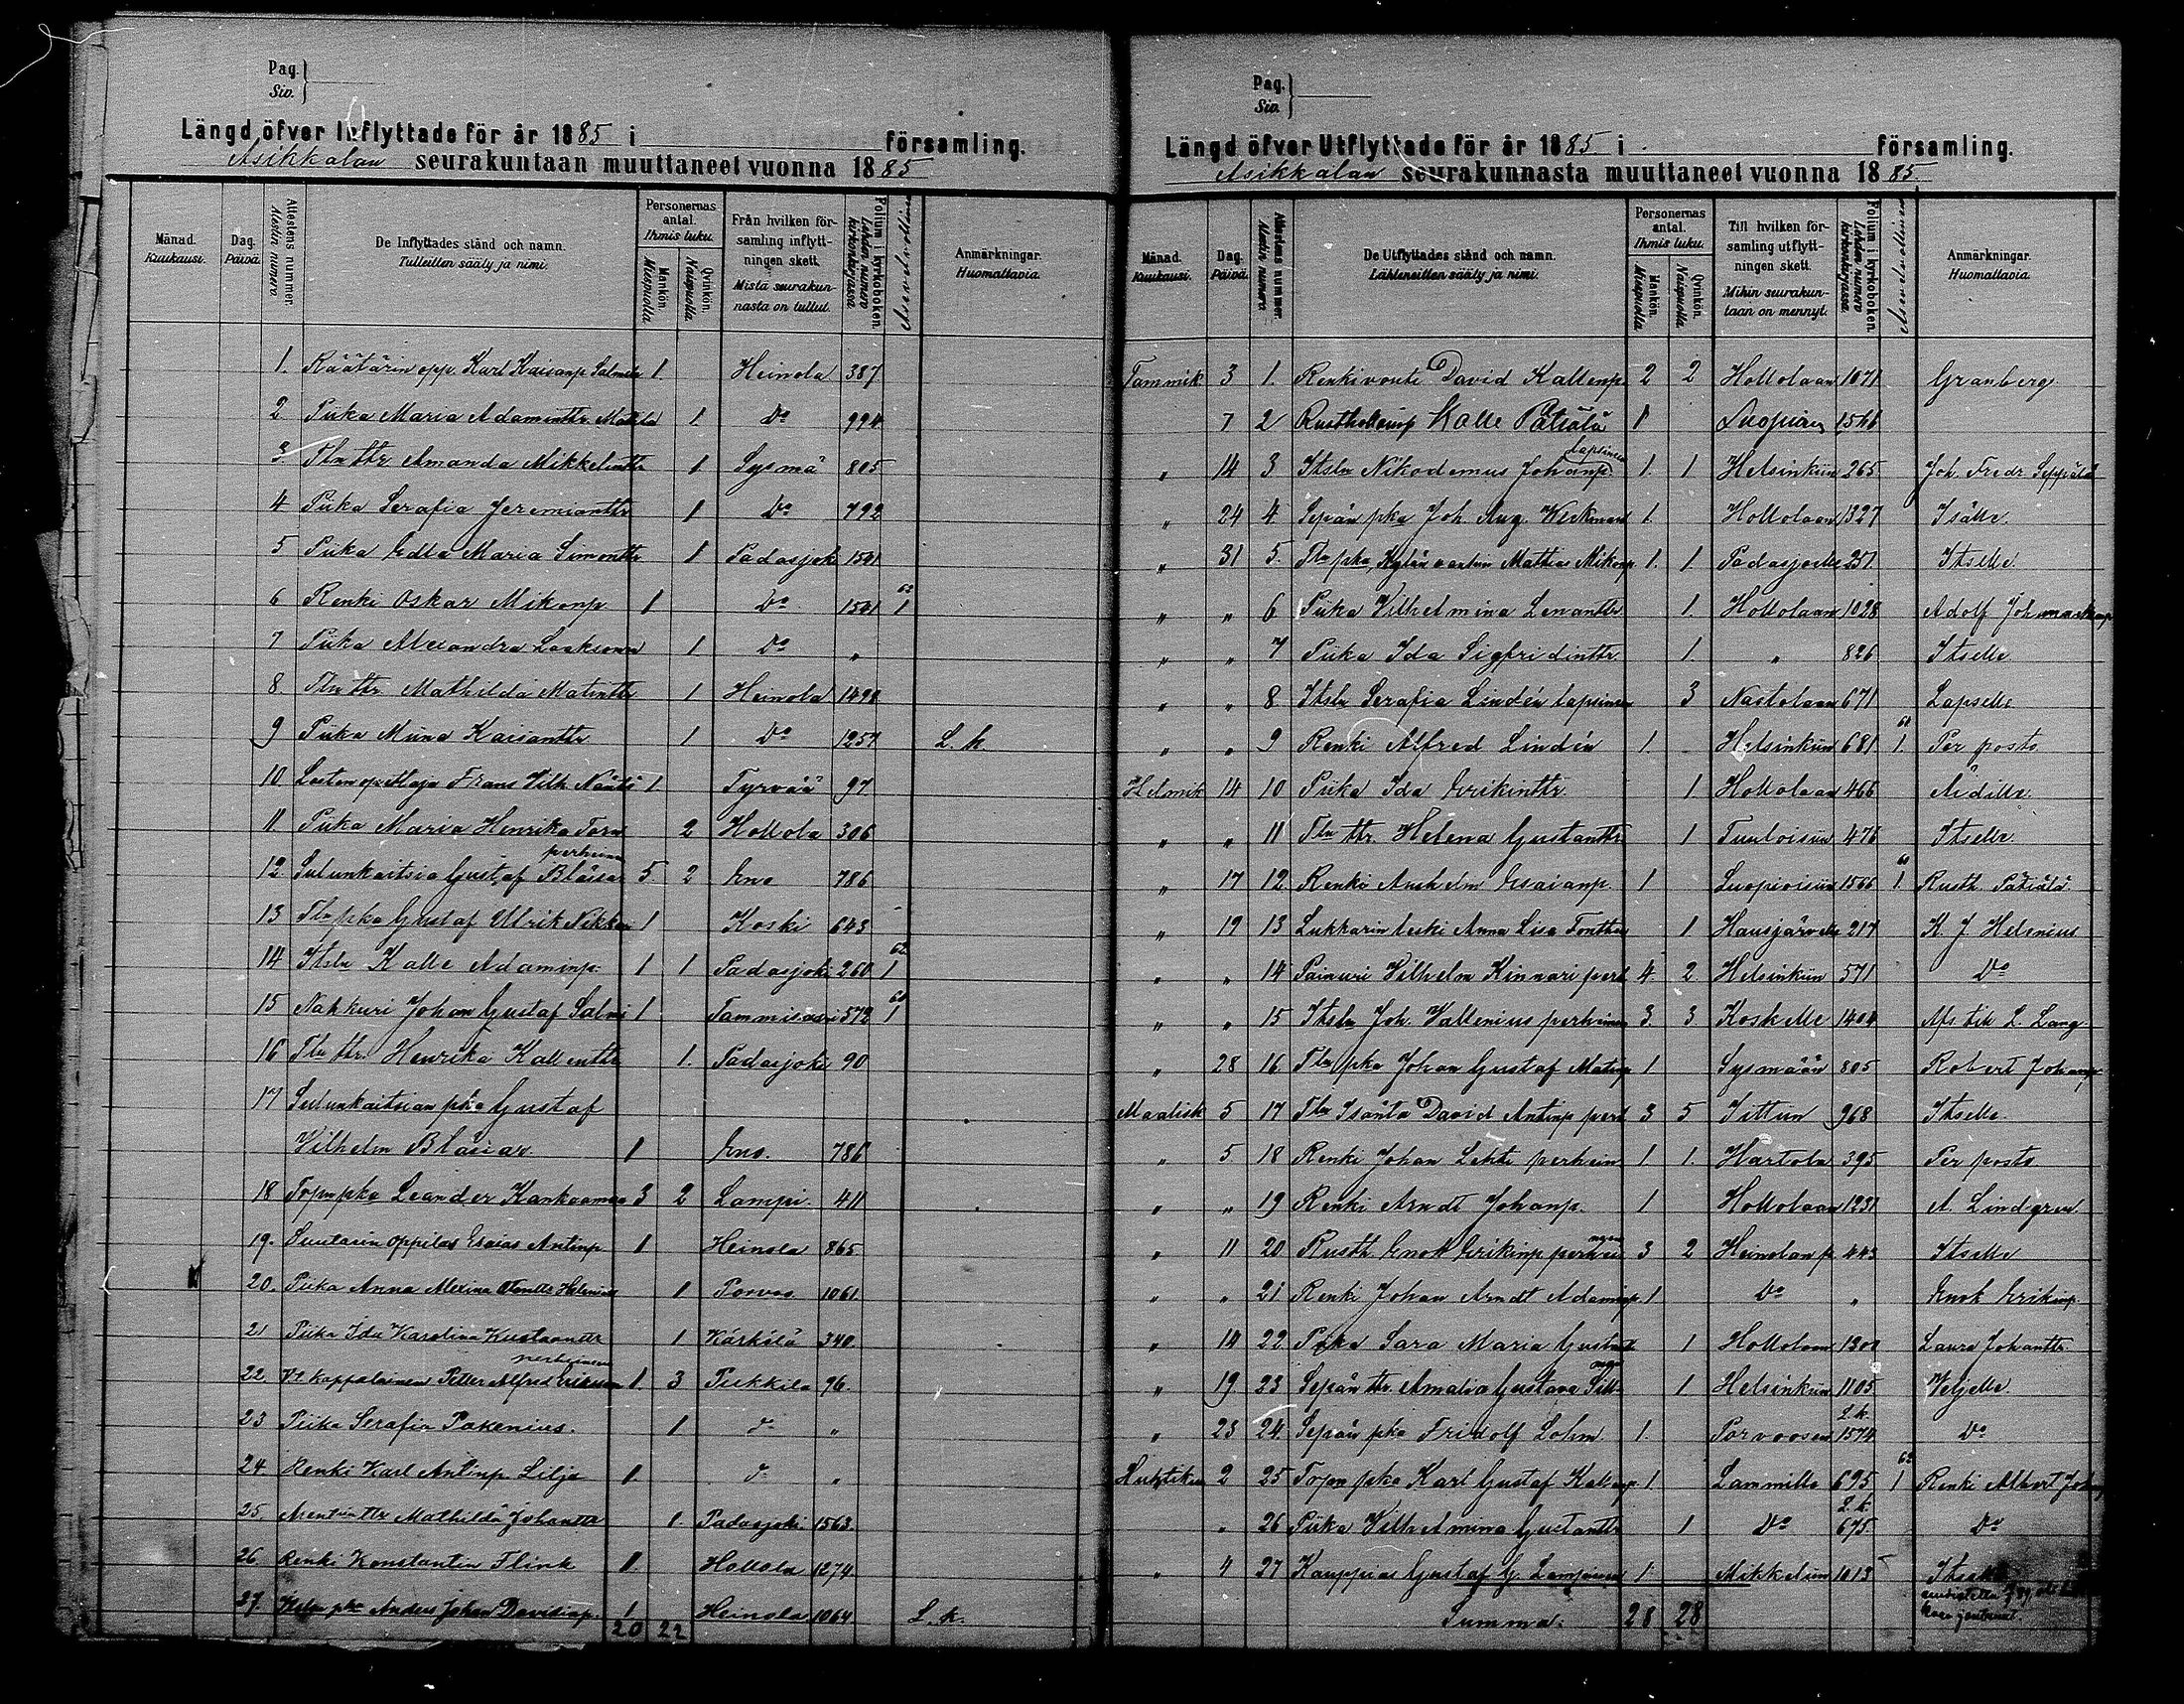 Pag.
Siv.
Längd öfver Inflyttade för år 1885 i församling.
Asikkalan seurakuntaan muuttaneet vuonna 1885
Månad. Kuukausi.
Dag. Päivä.
Attestens nummer. Atestin numero
De Inflyttades stånd och namn. Tulleitten sääty ja nimi.
Personernas antal. Ihmis luku.
Mankön. Miespuolia
Qvinkön. Naispuolia
Från hvilken församling inflyttningen skett. Mistä seurakunnasta on tullut.
Folium i kyrkoboken. Lehden numero kirkonkirjassa
Asevelvollinen
Anmärkningar. Huomattavia.
1. Räätärin opp. Karl Kaisanp. Salmela 1. Heinola 387
2. Piika Maria Adamintr. Matilda 1 Do 994
3. Tln ttr Amanda Mikkelintr 1 Sysmä 805
4 Piika Serafia Jeremiantr 1 Do 792
5 Piika Edla Maria Simontr 1 Padasjoki 1541
6 Renki Oskar Mikonp 1 Do 1541 62 1
7 Piika Alexandra Laaksonen 1 Do "
8. Tln ttr Mathilda Matintr 1 Heinola 1498
9 Piika Miina Kaisantr 1 Do 1257 L. k
10. Frans Vilh. 1 Tyrvää 97
11. Piika Maria Henrika Torn 2 Hollola 306
12. Sulunkaitsia Gustaf Bläsiar perheineen 5 2 Eno 786
13 Tln pka Gustaf Ulrik 1 Koski 643
14 Itsln Kalle Adaminp. 1 1 Padasjoki 260 62 1
15 Nahkuri Johan Gustaf Salmi 1 Tammisaari 572 60 1
16 Tln ttr. Henrika Kallentr 1. Padasjoki 90
17 Sulunkaitsian pka Gustaf
Vilhelm Bläsiar 1 Eno. 786
18 Torpn pka Leander Kankaanmaa 3 2 Lampi. 411
19. Suutarin oppilas Esaias Antinp 1 Heinola 865
20. Piika Anna Helenius 1 Porvoo 1061
21 Piika Ida Karolina Kustaantr 1 Kärkölä 340.
22. Vt kappalainen Petter Alfred Eriksson perheineen 1. 3 Pukkila 96.
23 Piika Serafia Pakenius. 1 do "
24 Renki Karl Antinp. Lilja 1 do "
25. Mathilda Johantr 1. Padasjoki 1563
26. Renki Konstantin Flink 1. Hollola 1274
27. Itsln pka Anders Johan Davidinp. 1 Heinola 1064 L. k.
20 22
Pag.
Siv.
Längd öfver Utflyttade för år 1885 i församling.
Asikkalan seurakunnasta muuttaneet vuonna 1885.
Månad. Kuukausi.
Dag. Päivä.
Attestens nummer. Atestin numero
De Utflyttades stånd och namn. Lähteneitten sääty ja nimi.
Personernas antal. Ihmis luku.
Mankön. Miespuolia
Qvinkön. Naispuolia
Till hvilken församling utflyttningen skett. Mihin seurakuntaan on mennyt.
Folium i kyrkoboken. Lehden numero kirkonkirjassa
Asevelvollinen
Anmärkningar. Huomattavia.
Tammik 3 1. Renkivouti David Kallenp. 2 2 Hollolaan 1071 Granberg
7 2 Rusthollinp Kalle Pätiälä 1 1546
" 14 3 Itsln Nikodemus Johanp. lapsineen 1. 1 Helsinkiin 265 Joh. Fredr. Seppälä
" 24 4 Sepän pka Joh. Aug. Weckman 1. Hollolaan 1327 Isälle.
" 31 5. Tln pka, Kylän vantin Mathias Mikonp. 1. 1 Padasjoelle 251 Itselle.
" " 6 Piika Vilhelmina Lenantr. 1. Hollolaan 1028 Adolf
" " 7 Piika Ida Sigfridintr. 1. " 826 Itselle
" " 8 Itsln Serafia Lindén lapsineen 3 Nastolaan 671 Lapselle
" " 9 Renki Alfred Lindén 1. Helsinkiin 681 60 1. Per posto
Helmik 14 10 Piika Ida Erikintr. 1. Hollolaan 466 Äidille.
" " 11 Tln ttr. Helena Gustantr 1 Tuuloisiin 476 Itselle.
" 17 12 Renki Anshelm Esaianp. 1 Luopioisiin 1566 60 1. Rusth. Pätiälä.
" 19 13 Lukkarin leski Anna Lisa 1 Hausjärvelle 217 K. J. Helenius
" " 14 Vilhelm Kinnari perh 4. 2 Helsinkiin 571 Do
" " 15 Itsln Joh. Vallenius perheineen 3. 3. Koskelle 1404 L. Lang.
" 28 16. Tln pka Johan Gustaf Matinp 1 Sysmään 805 Robert Johanp
Maalisk 5 17 Tln Isäntä David Antinp perh 3 5 Iittiin 968 Itselle.
" 5 18 Renki Johan Lehti perhein 1 1. Hartola 395 Per posto
" " 19 Renki Arndt Johanp. 1 Hollolaan 1231 A. Lindgren
" 11 20 Rusth. Enok Erikinp perheineen 3 2 Heinolan p. 443 Itselle
" " 21 Renki Johan Arndt Adaminp. 1 Do " Enok Erikinp.
" 14 22 Piika Sara Maria Gustant 1 Hollolaan 1300 Laura Johantr
" 19 23 Sepän ttr. Amalia Gustava 1 Helsinkiin 1105 Veljelle.
" 23 24. Sepän pka Fridolf Lohm. 1. Porvoosen L.k. 1574 Do
Huhtikuu 2 25 Torpn pka Karl Gustaf Kallenp. 1. Lammille 695 62 1 Renki Albert
" 26 Piika Vilhelmina Gustantr 1 Do L.k. 675 Do
" 4 27 Kauppias Gustaf G. 1. Mikkeliin 1013 Itselle
Summa: 28 28